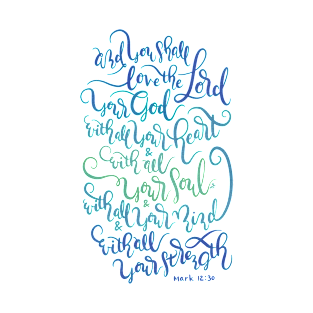 and You shall
love the Lord
Your God
with all Your heart
&
with all
Your Soul
&
with all Your Mind
&
with all
Your strength
Mark 12:30